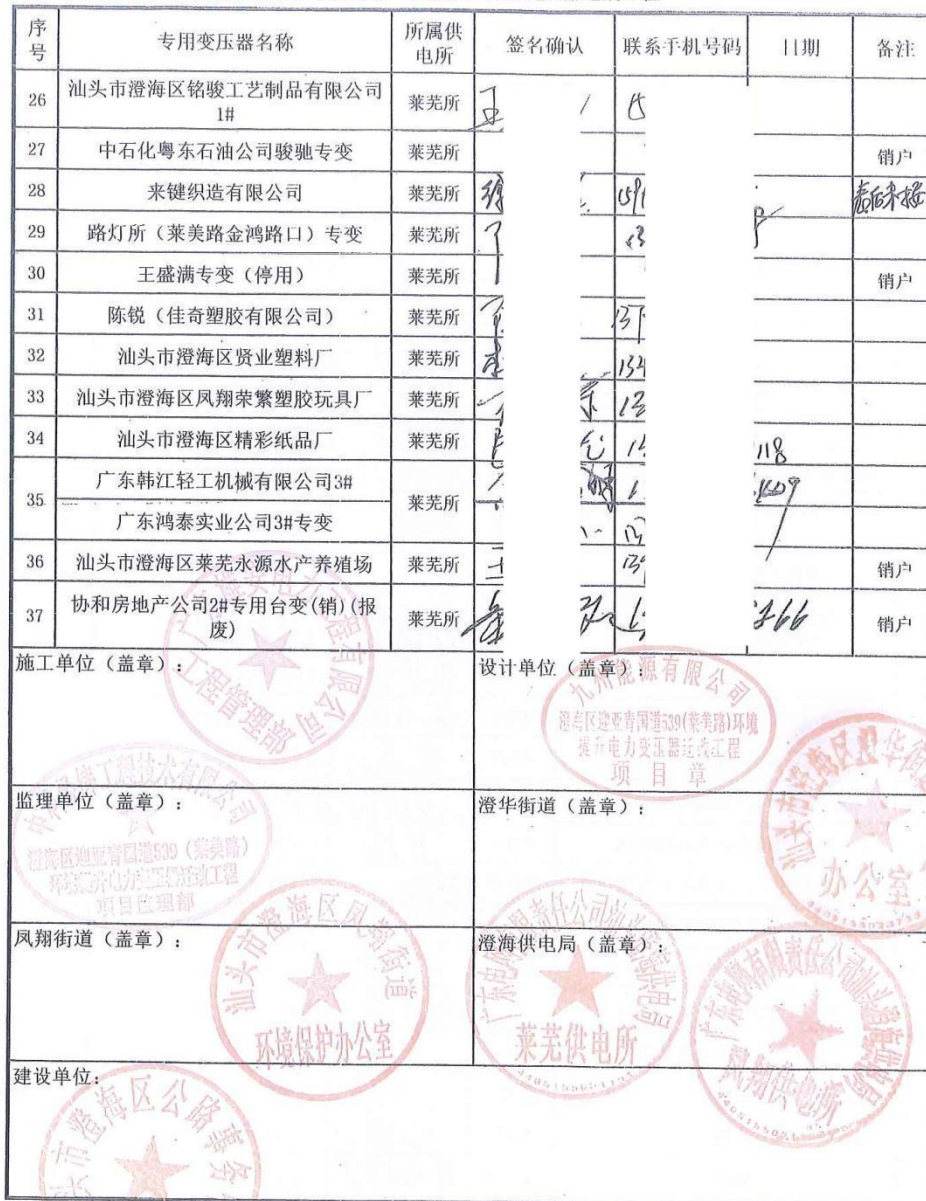 序号 专用变压器名称 所属供电所 签名确认 联系手机号码 日期 备注
26 汕头市澄海区铭骏工艺制品有限公司1# 莱芜所
27 中石化粤东石油公司骏驰专变 莱芜所 销户
28 来键织造有限公司 莱芜所
29 路灯所（莱美路金鸿路口）专变 莱芜所
30 王盛满专变（停用） 莱芜所 销户
31 陈锐（佳奇塑胶有限公司） 莱芜所
32 汕头市澄海区贤业塑料厂 莱芜所
33 汕头市澄海区凤翔荣繁塑胶玩具厂 莱芜所
34 汕头市澄海区精彩纸品厂 莱芜所
35 广东韩江轻工机械有限公司3# 莱芜所
广东鸿泰实业公司3#专变
36 汕头市澄海区莱芜永源水产养殖场 莱芜所 销户
37 协和房地产公司2#专用台变(销)(报废) 莱芜所 销户
施工单位（盖章）：
工程管理部
设计单位（盖章）：
九州能源有限公司
澄海区迎亚青国道539(莱美路)环境
提升电力变压器迁改工程
项目章
监理单位（盖章）：
澄海区迎亚青国道539（莱美路）
环境提升电力变压器迁改工程
项目监理部
澄华街道（盖章）：
办公室
凤翔街道（盖章）：
汕头市澄海区凤翔街道
环境保护办公室
澄海供电局（盖章）：
广东电网有限责任公司汕头澄海供电局
莱芜供电所
广东电网有限责任公司汕头澄海供电局
凤翔供电所
建设单位：